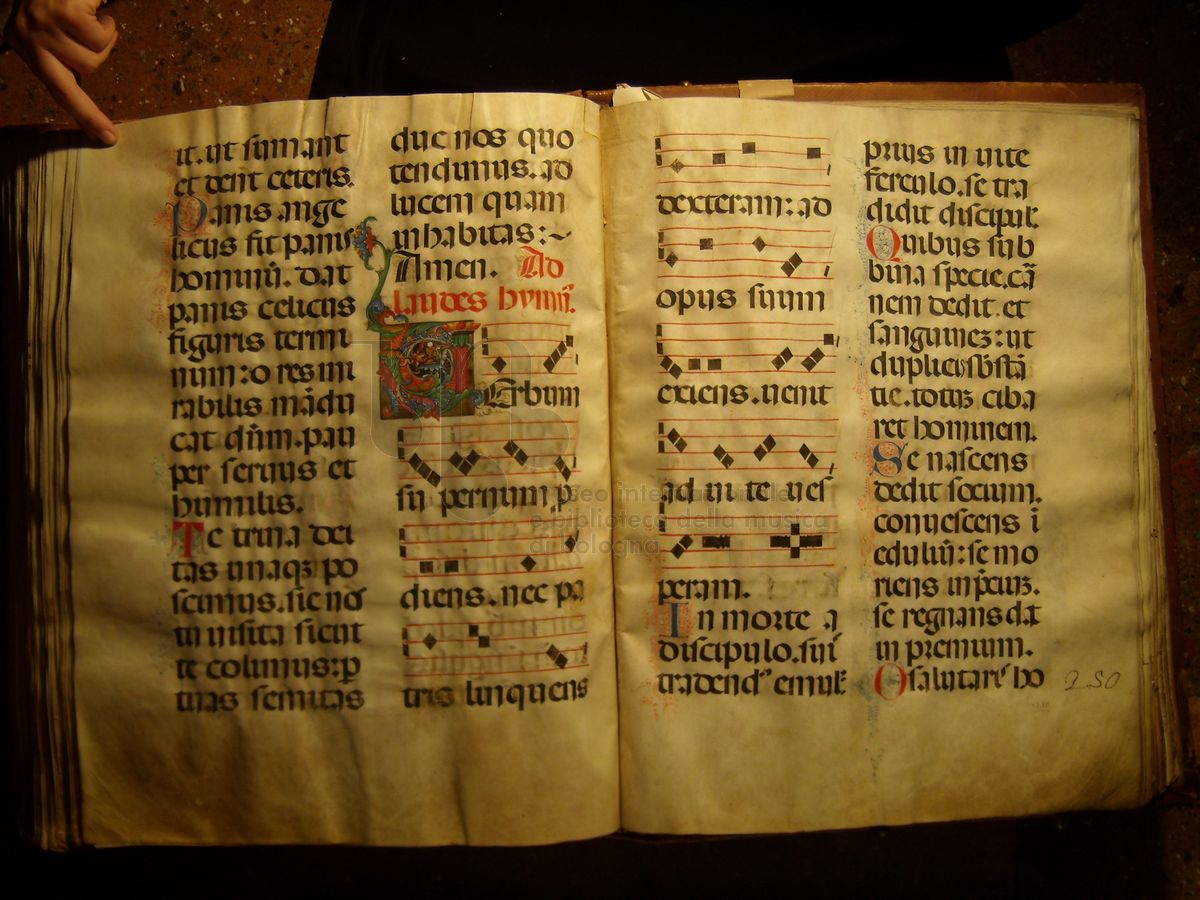 it. ut sumant
et dent ceteris.
Panis ange
licus fit panis
hominū. dat
panis celicus
figuris termi
num: o res mi
rabilis mādu
cat dn̄m. pau
per seruus et
humilis.
Te trina dei
tas unaqꝫ po
scimus. sic nos
tu uisita sicut
te colimus: ꝑ
tuas semitas
duc nos quo
tendimus. ad
lucem quam
inhabitas:~
Amen. Ad
laudes hymn̄.
UErbum
su pernum ꝓ
diens. nec pa
tris linquens
dexteram: ad
opus suum
exiens. uenit
ad ui te ues
peram.
In morte a
discipulo. sui
tradend⁹ emul
prius in uite
ferculo. se tra
didit discipul
Quibus sub
bina specie. cā
nem dedit. et
sanguineꝫ: ut
duplic sbstā
tie. totuꝫ ciba
ret hominem.
Se nascens
dedit socium.
conuescens ī
eduliū: se mo
riens in p̄ciuꝫ.
se regnans dat
in premium.
O salutar ho
250
museo internazionale
e biblioteca della musica
di bologna